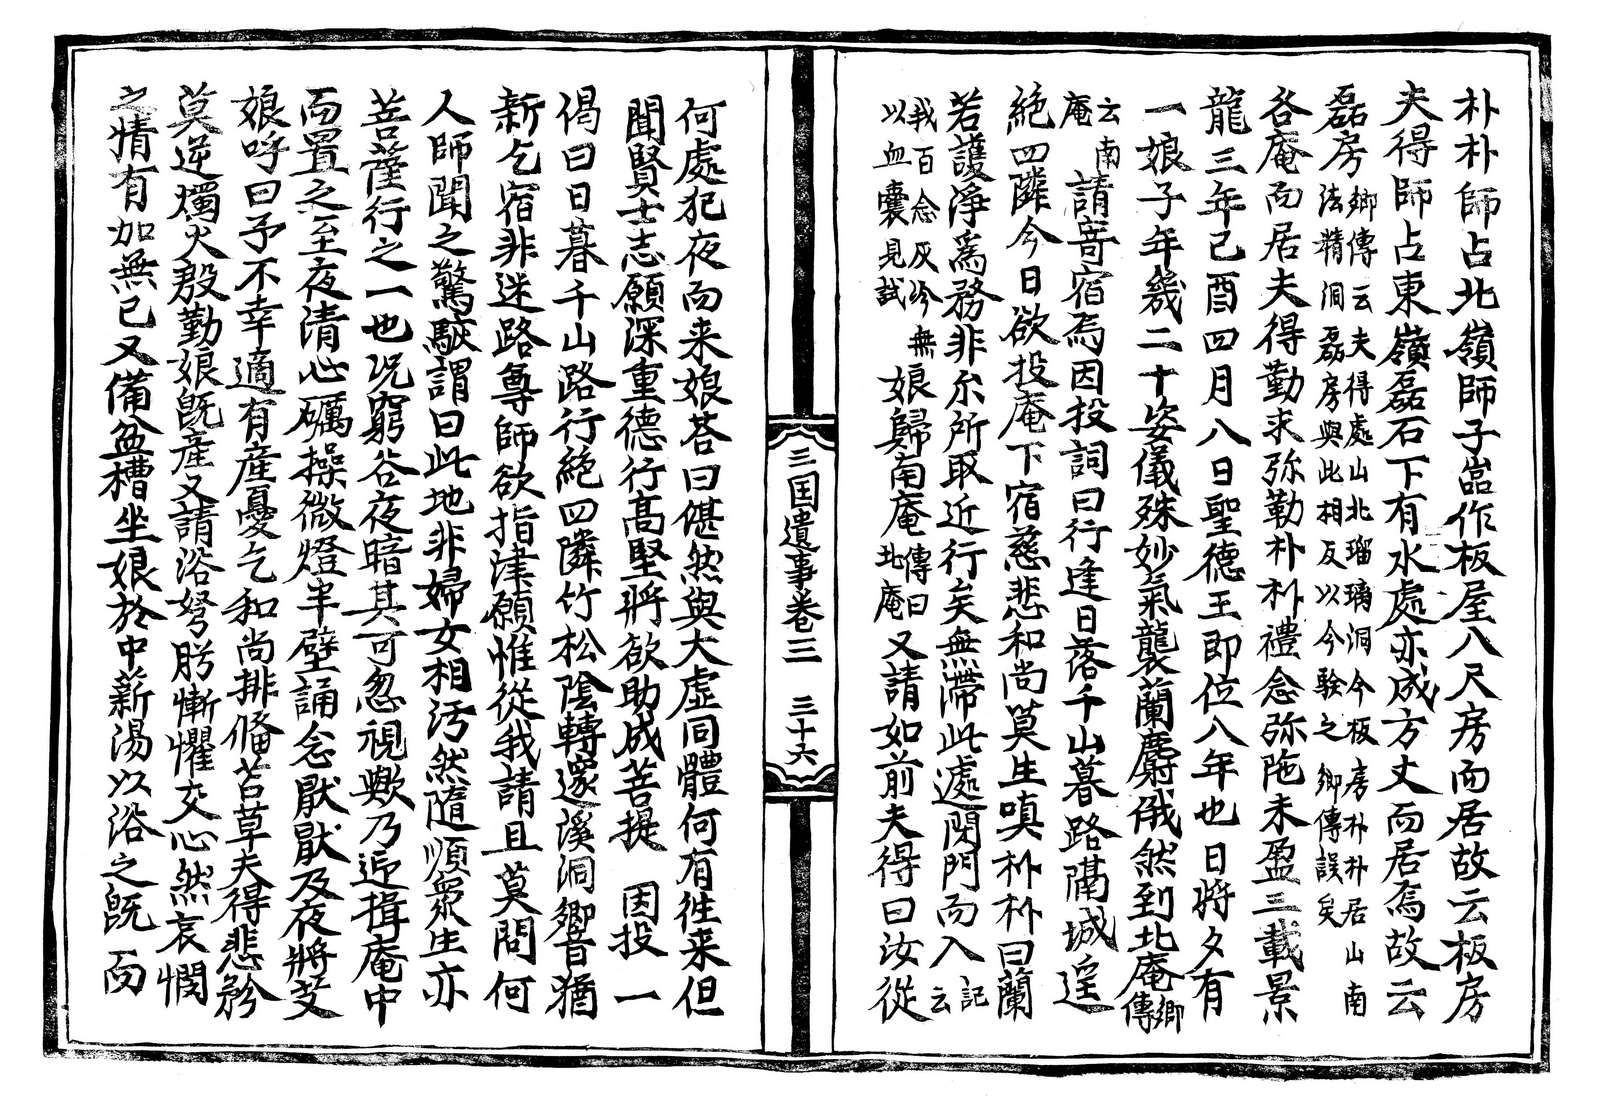 朴朴師占北嶺師子嵓作板屋八尺房而居故云板房
夫得師占東嶺磊石下有水處亦成方丈而居焉故云
磊房鄕傳云夫得處山北瑠璃洞今板房朴朴居山南
法精洞磊房與此相反以今驗之鄕傳誤矣
各庵而居夫得勤求弥勒朴朴禮念弥陁未盈三載景
龍三年己酉四月八日聖德王即位八年也日將夕有
一娘子年幾二十姿儀殊妙氣襲蘭麝俄然到北庵鄕傳
云南庵請寄宿焉因投詞曰行逢日落千山暮路隔城遥
絶四隣今日欲投庵下宿慈悲和尚莫生嗔朴朴曰蘭
若護淨爲務非尔所取近行矣無滯此處閉門而入記云
我百念灰冷無以血囊見試娘歸南庵傳曰北庵又請如前夫得曰汝從
三国遺事卷三 三十六
何處犯夜而来娘荅曰湛然與大虛同體何有徃来但
聞賢士志願深重德行髙堅將欲助成菩提因投一
偈曰日暮千山路行行絶四隣竹松陰轉邃溪洞響猶
新乞宿非迷路尊師欲指津願惟從我請且莫問何
人師聞之驚駭謂曰此地非婦女相汚然隨順衆生亦
菩薩行之一也况窮谷夜暗其可忽視歟乃迎揖庵中
而置之至夜清心礪操微燈半壁誦念厭厭及夜將艾
娘呼曰予不幸適有産憂乞和尚排俻苫草夫得悲矜
莫逆燭火殷勤娘旣産又請浴弩肹慚懼交心然哀憫
之情有加無已又備盆槽坐娘於中薪湯以浴之旣而